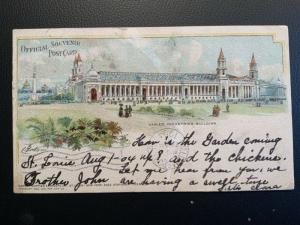 OFFICIAL SOUVENIR
POST CARD
VARIED INDUSTRIES BUILDING
How is the Garden coming
St. Louis Aug 1-04 up? and the chickens.
Brother John Let me hear from you, we
are having a swell time